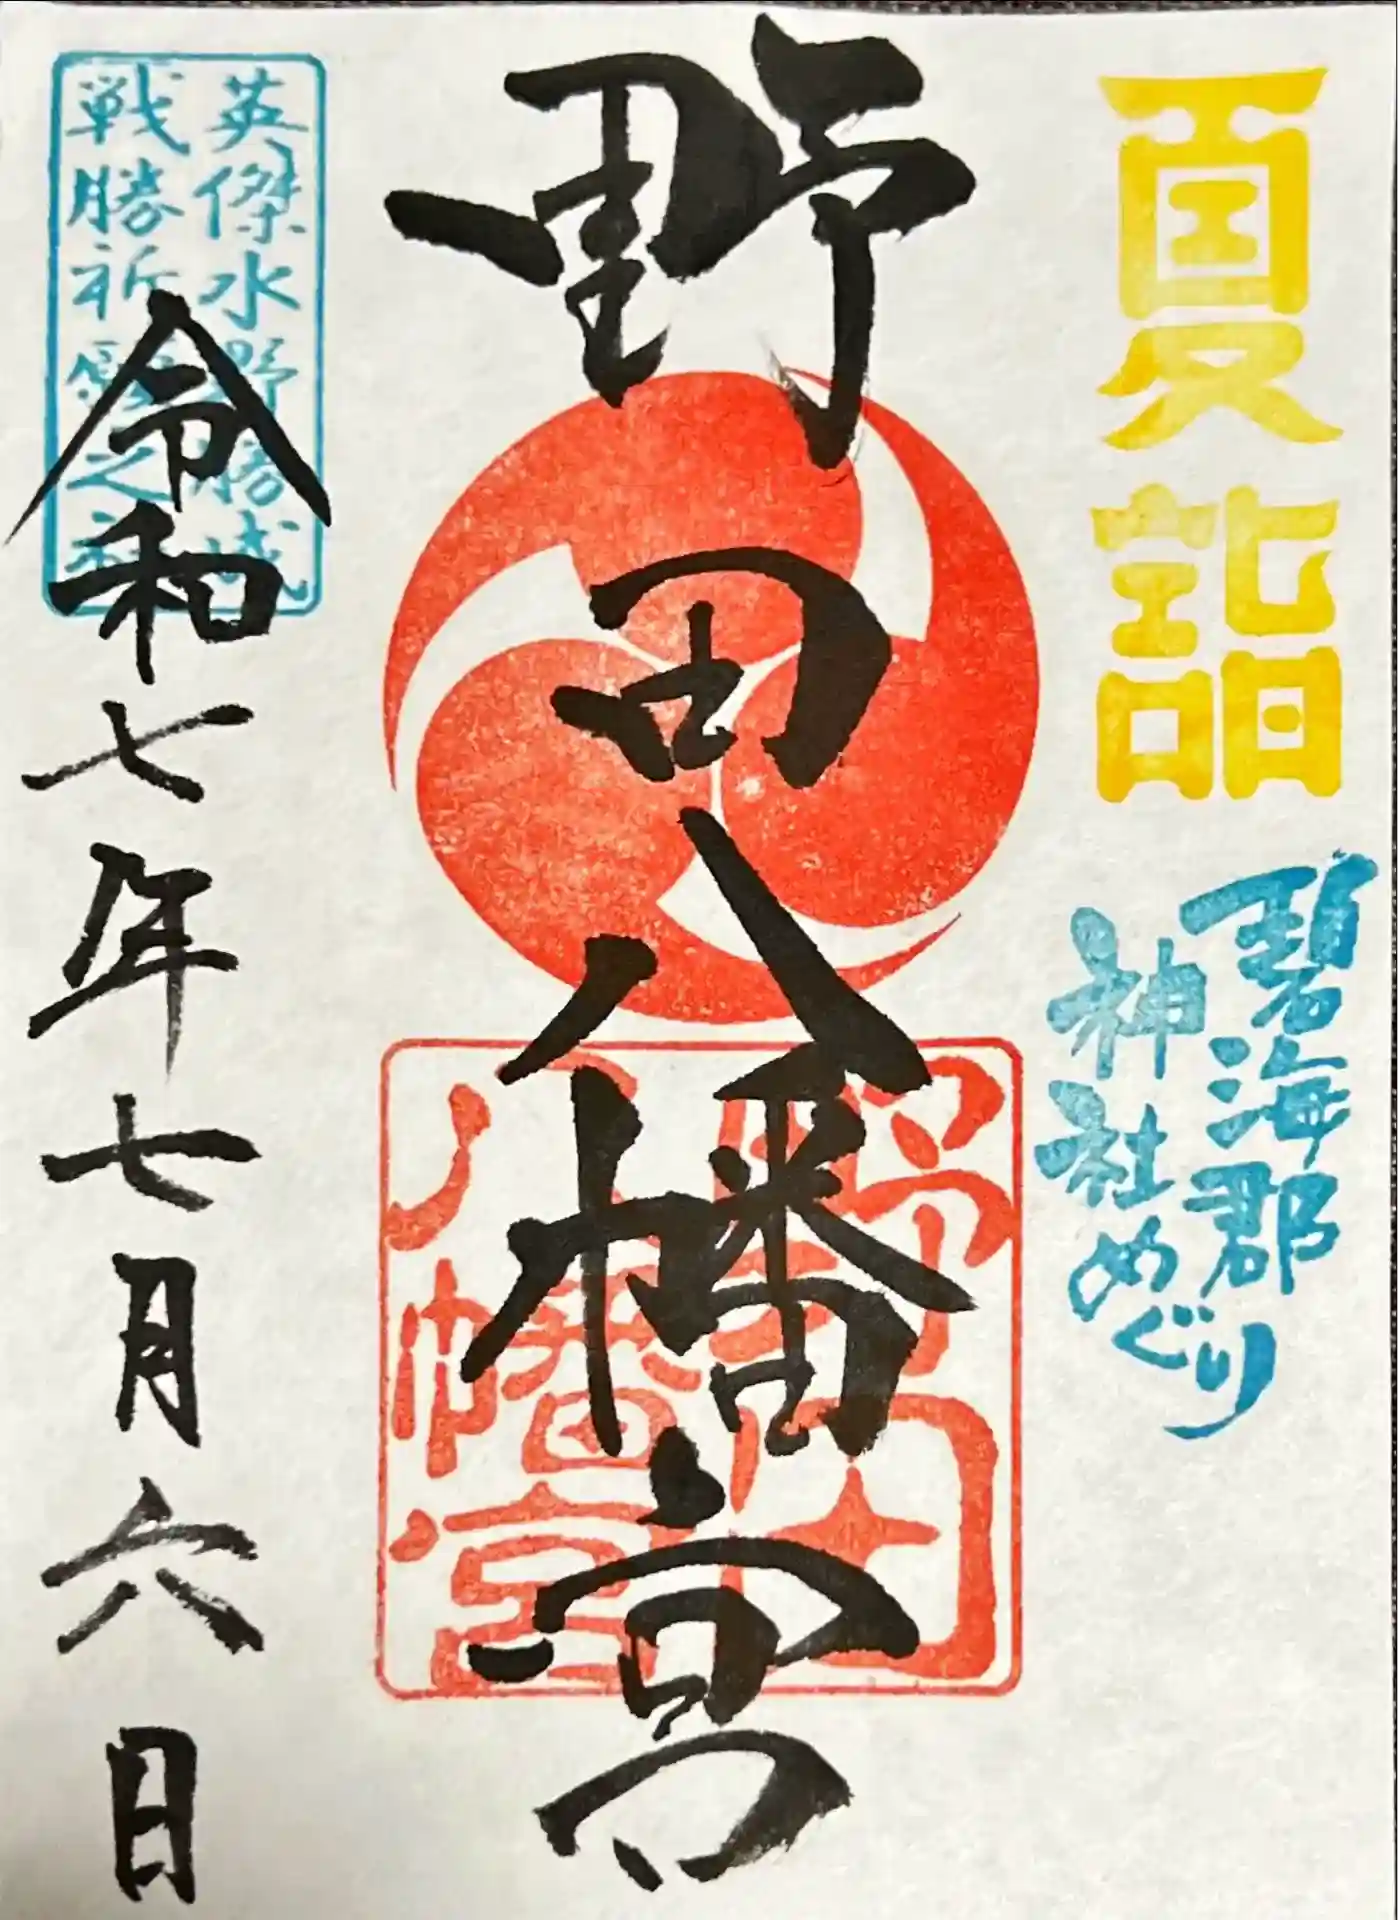 夏詣
碧海郡
神社めぐり
野田八幡宮
野田
八幡宮
英傑水野勝成
戦勝祈願之社
令和七年七月六日